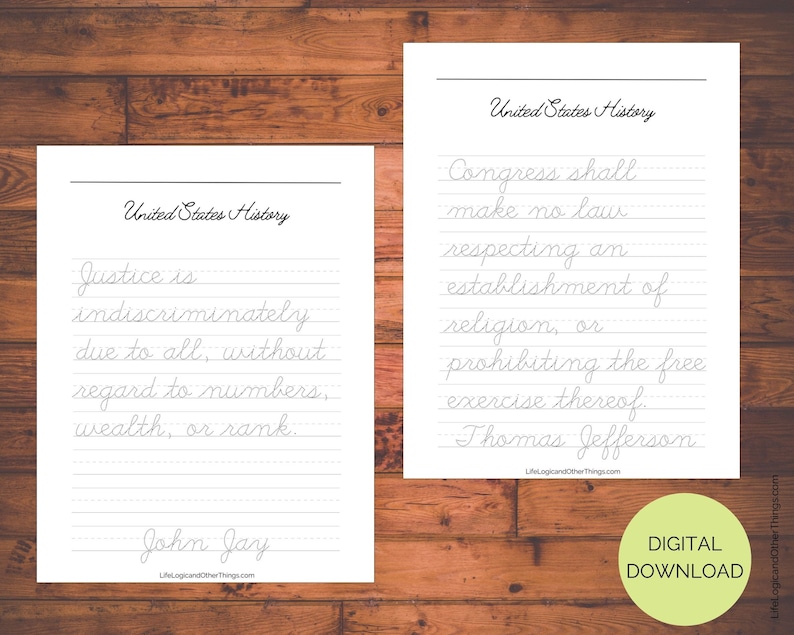 United States History
Justice is
indiscriminately
due to all, without
regard to numbers,
wealth, or rank.
John Jay
LifeLogicandOtherThings.com
United States History
Congress shall
make no law
respecting an
establishment of
religion, or
prohibiting the free
exercise thereof.
Thomas Jefferson
LifeLogicandOtherThings.com
DIGITAL
DOWNLOAD
LifeLogicandOtherThings.com